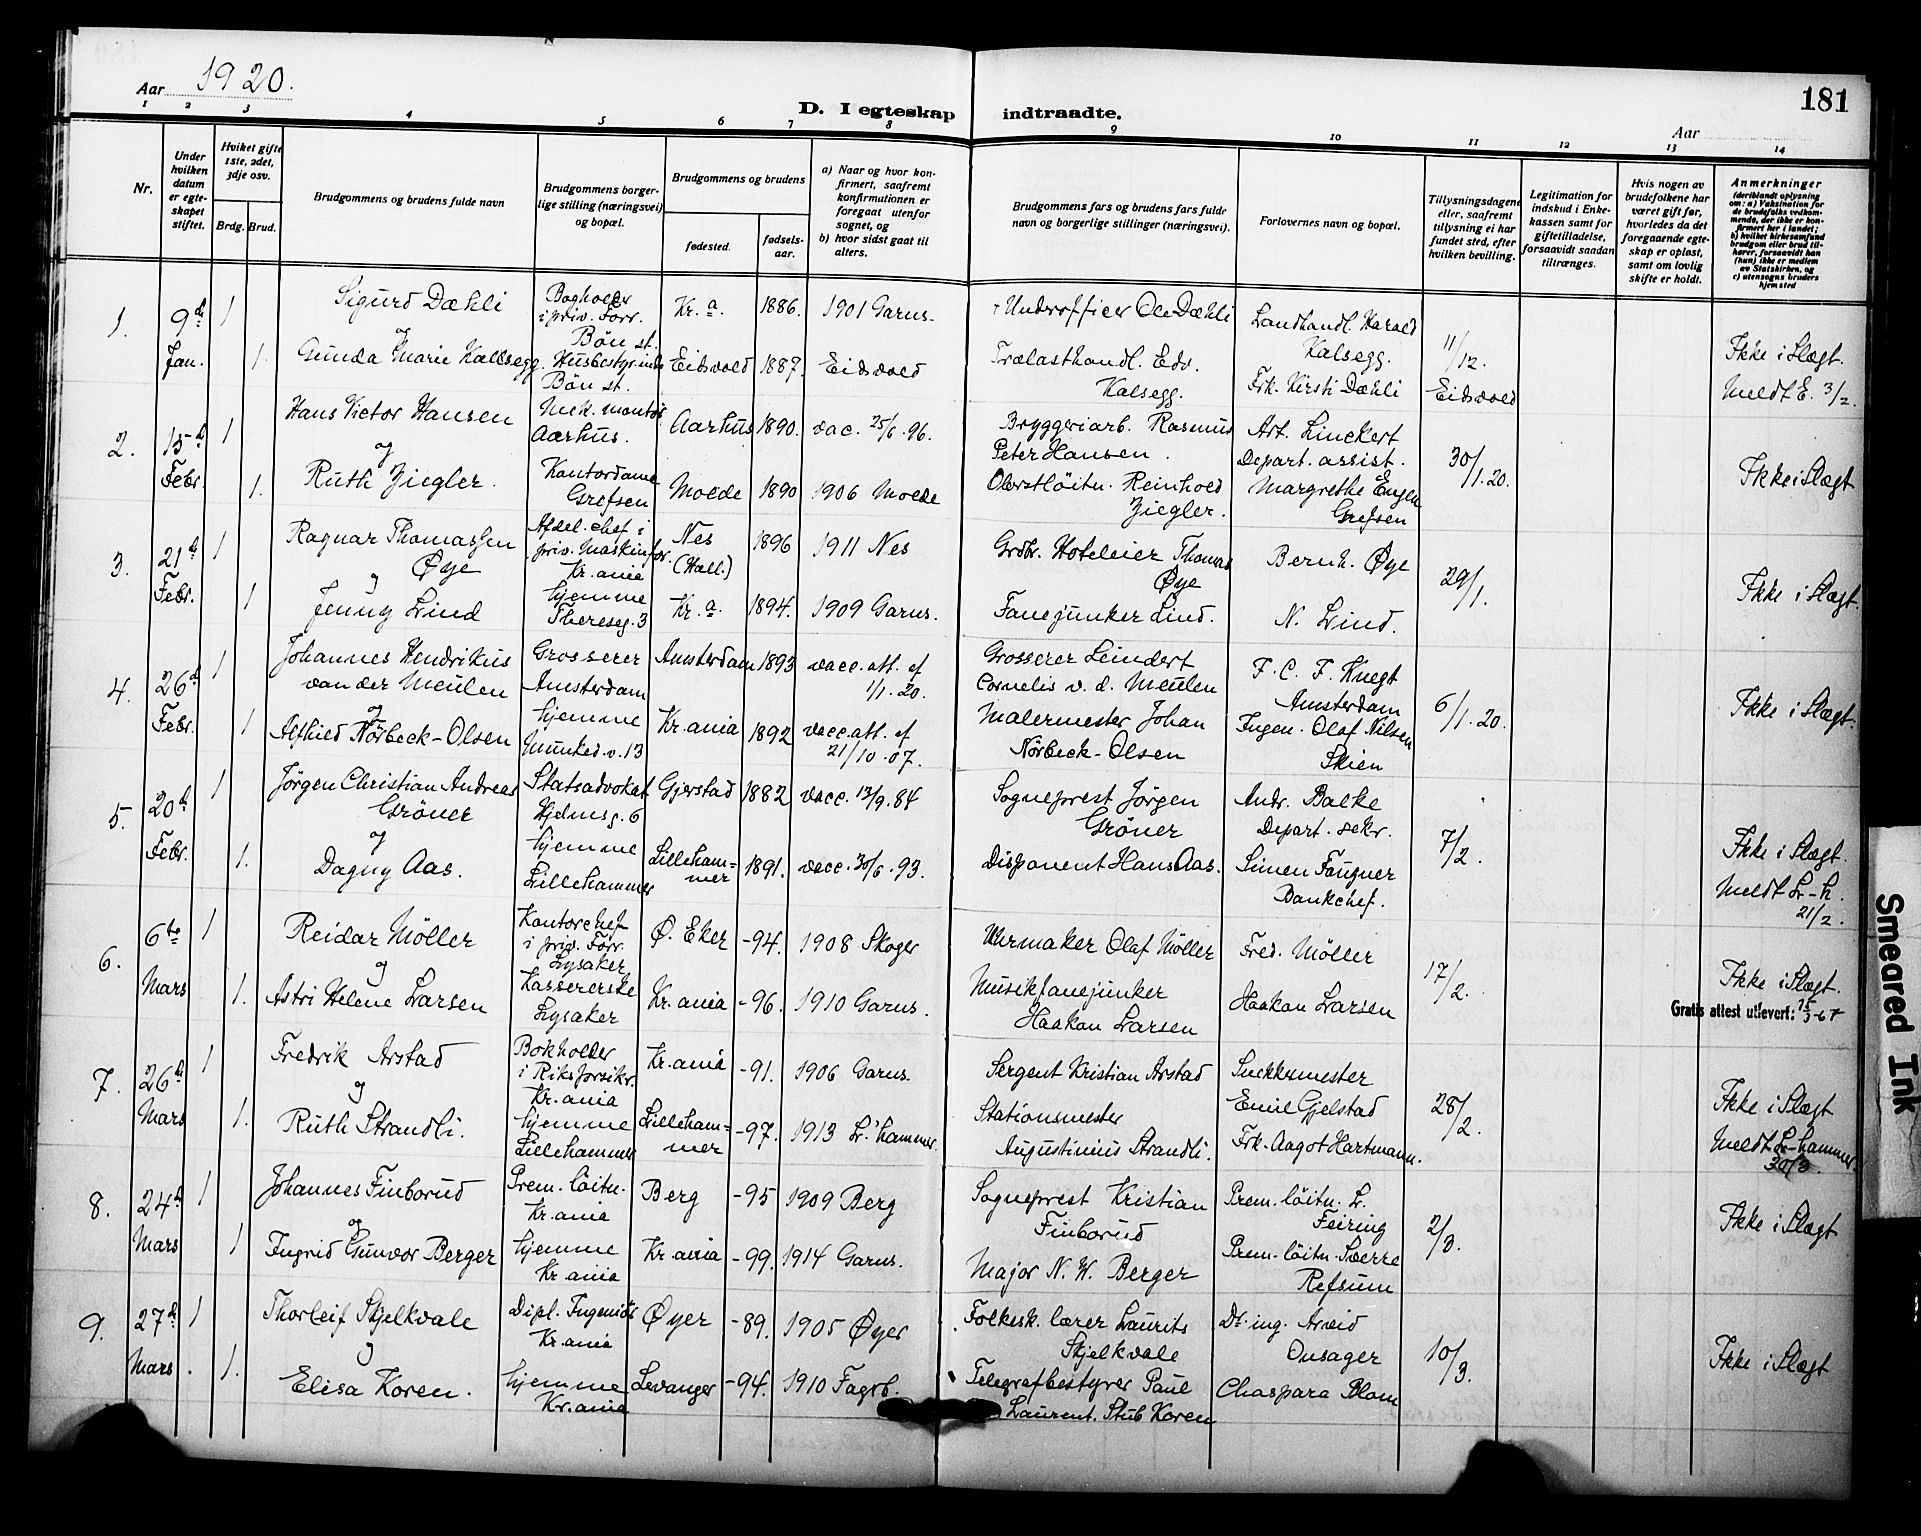 Aar 1920.
D. I egteskap indtraadte.
181
Aar
1 2 3 4 5 6 7 8 9 10 11 12 13 14
Nr.
Under hvilken datum er egteskapet stiftet.
Hviket gifte 1ste, 2det, 3dje osv.
Brdg. Brud.
Brudgommens og brudens fulde navn
Brudgommens borgerlige stilling (næringsvei) og bopæl.
Brudgommens og brudens
fødested.
fødselsaar.
a) Naar og hvor konfirmert, saafremt konfirmationen er foregaat utenfor sognet, og
b) hvor sidst gaat til alters.
Brudgommens fars og brudens fars fulde navn og borgerlige stillinger (næringsvei).
Forlovernes navn og bopæl.
Tillysningsdagene eller, saafremt tillysning ei har fundet sted, efter hvilken bevilling.
Legitimation for indskud i Enkekassen samt for giftetilladelse, forsaavidt saadan tiltrænges.
Hvis nogen av brudefolkene har været gift før, hvorledes da det foregaaende egteskap er opløst, samt om lovlig skifte er holdt.
Anmerkninger (deriblandt oplysning om: a) Vaksination for de brudefolks vedkommende, der ikke er konfirmert her i landet; b) hvilket kirkesamfund brudgom eller brud tilhører, forsaavidt han (hun) ikke er medlem av Statskirken, og c) utensogns bruders hjemsted
1. 9de Jan. 1 Sigurd Dæhli Bogholder i priv. Forr. Bøn st. Kr.a. 1886. 1901 Garns. † Underofficer Ole Dæhli Landhandl. Harald Kalsegg. 11/12.
og
1. Gunda Marie Kallsegg. Husbestyrinde Bøn st. Eidsvold 1887. Eidsvold Trælasthandl. Edv. Kalsegg. Frk. Kirsti Dæhli Eidsvold Ikke i Slægt. Meldt E. 3/2.
2. 15d Febr. 1 Hans Victor Hansen Mek. montør Aarhus. Aarhus 1890. vac. 25/6.96. Bryggeriarb. Rasmus Peter Hansen. Art. Linckert Depart. assist. 30/1.20.
og
1. Ruth Ziegler. Kontordame Grefsen Molde 1890 1906 Molde Oberstløitn. Reinhold Ziegler. Margrethe Engen Grefsen Ikke i Slægt
3. 21d Febr. 1 Ragnar Thomassen Øye Afdel.chef i priv. Maskinfor. Kr.ania Nes (Hall.) 1896 1911 Nes Grdbr. Hoteleier Thomas Øye Bernh. Øye 29/1.
og
1 Jenny Lind hjemme Thereseg. 3 Kr.a 1894. 1909 Garns. Fanejunker Lind. N. Lind. Ikke i Slægt.
4. 26d Febr. 1 Johannes Hendrikus van der Meulen Grosserer Amsterdam Amsterdam 1893 vacc. att. af 1/1.20. Grosserer Leindert Cornelis v. d. Meulen F. C. F. Knegt Amsterdam 6/1.20.
og
1 Alfhild Nørbeck-Olsen hjemme Munked.v. 13 Kr.ania 1892 vacc. att. af 21/10.07. Malermester Johan Nörbeck-Olsen Ingen. Olaf Nilsen Skien Ikke i Slægt.
5. 20d Febr. 1 Jörgen Christian Andreas Gröner Statsadvokat Hjelmsg. 6 Gjerstad 1882 vacc. 13/9.84 Sogneprest Jörgen Gröner Andr. Balke Depart. sekr. 7/2.
og
1. Dagny Aas. hjemme Lillehammer Lillehammer 1891. vacc. 30/6.93. Disponent Hans Aas. Simen Fougner Bankchef. Ikke i Slægt. Meldt L-h. 21/2.
6. 6te Mars 1 Reidar Möller Kontorchef i priv. Forr. Lysaker Ø. Eker -94. 1908 Skoger Uhrmaker Olaf Möller Fred. Möller 17/2.
og
1. Astri Helene Larsen Kassererske Lysaker Kr.ania -96. 1910 Garns. Musikfanejunker Haakan Larsen Haakan Larsen Ikke i Slægt.
Gratis attest utlevert: 15/3-67
7. 26d Mars 1 Fredrik Arstad Bokholder i Riksforsikr. Kr.ania Kr.ania -91. 1906 Garns. Sergent Kristian Arstad Emil Gjelstad 28/2.
og
1. Ruth Strandli. hjemme Lillehammer Lillehammer -97. 1913 L.'hammer. Stationsmester Augustinius Strandli. Frk. Aagot Hartmann. Ikke i Slægt Meldt L-hammer. 30/3.
8. 24d Mars 1 Johannes Finborud Prem.löitn. Kr.ania Berg -95 1909 Berg Sogneprest Kristian Finborud Prem.-löitn. L. Feiring 2/3.
og
1 Ingrid Gunvor Berger hjemme Kr.ania Kr.ania -99. 1914 Garns. Major N. W. Berger Prem.-löitn. Sverre Refsum Ikke i Slægt
9. 27d Mars. 1 Thorleif Skjelkvale Dipl. Ingeniör Kr.ania Øyer -89. 1905 Øyer Folkesk. lærer Laurits Skjelkvale Dr. ing. Arvid Onsager 10/3.
og
1. Elisa Koren. hjemme Kr.ania Levanger -94. 1910 Fageb. Telegrafbestyrer Paul Laurent. Stub Koren Chaspara Blom Ikke i Slægt
Smeared Ink